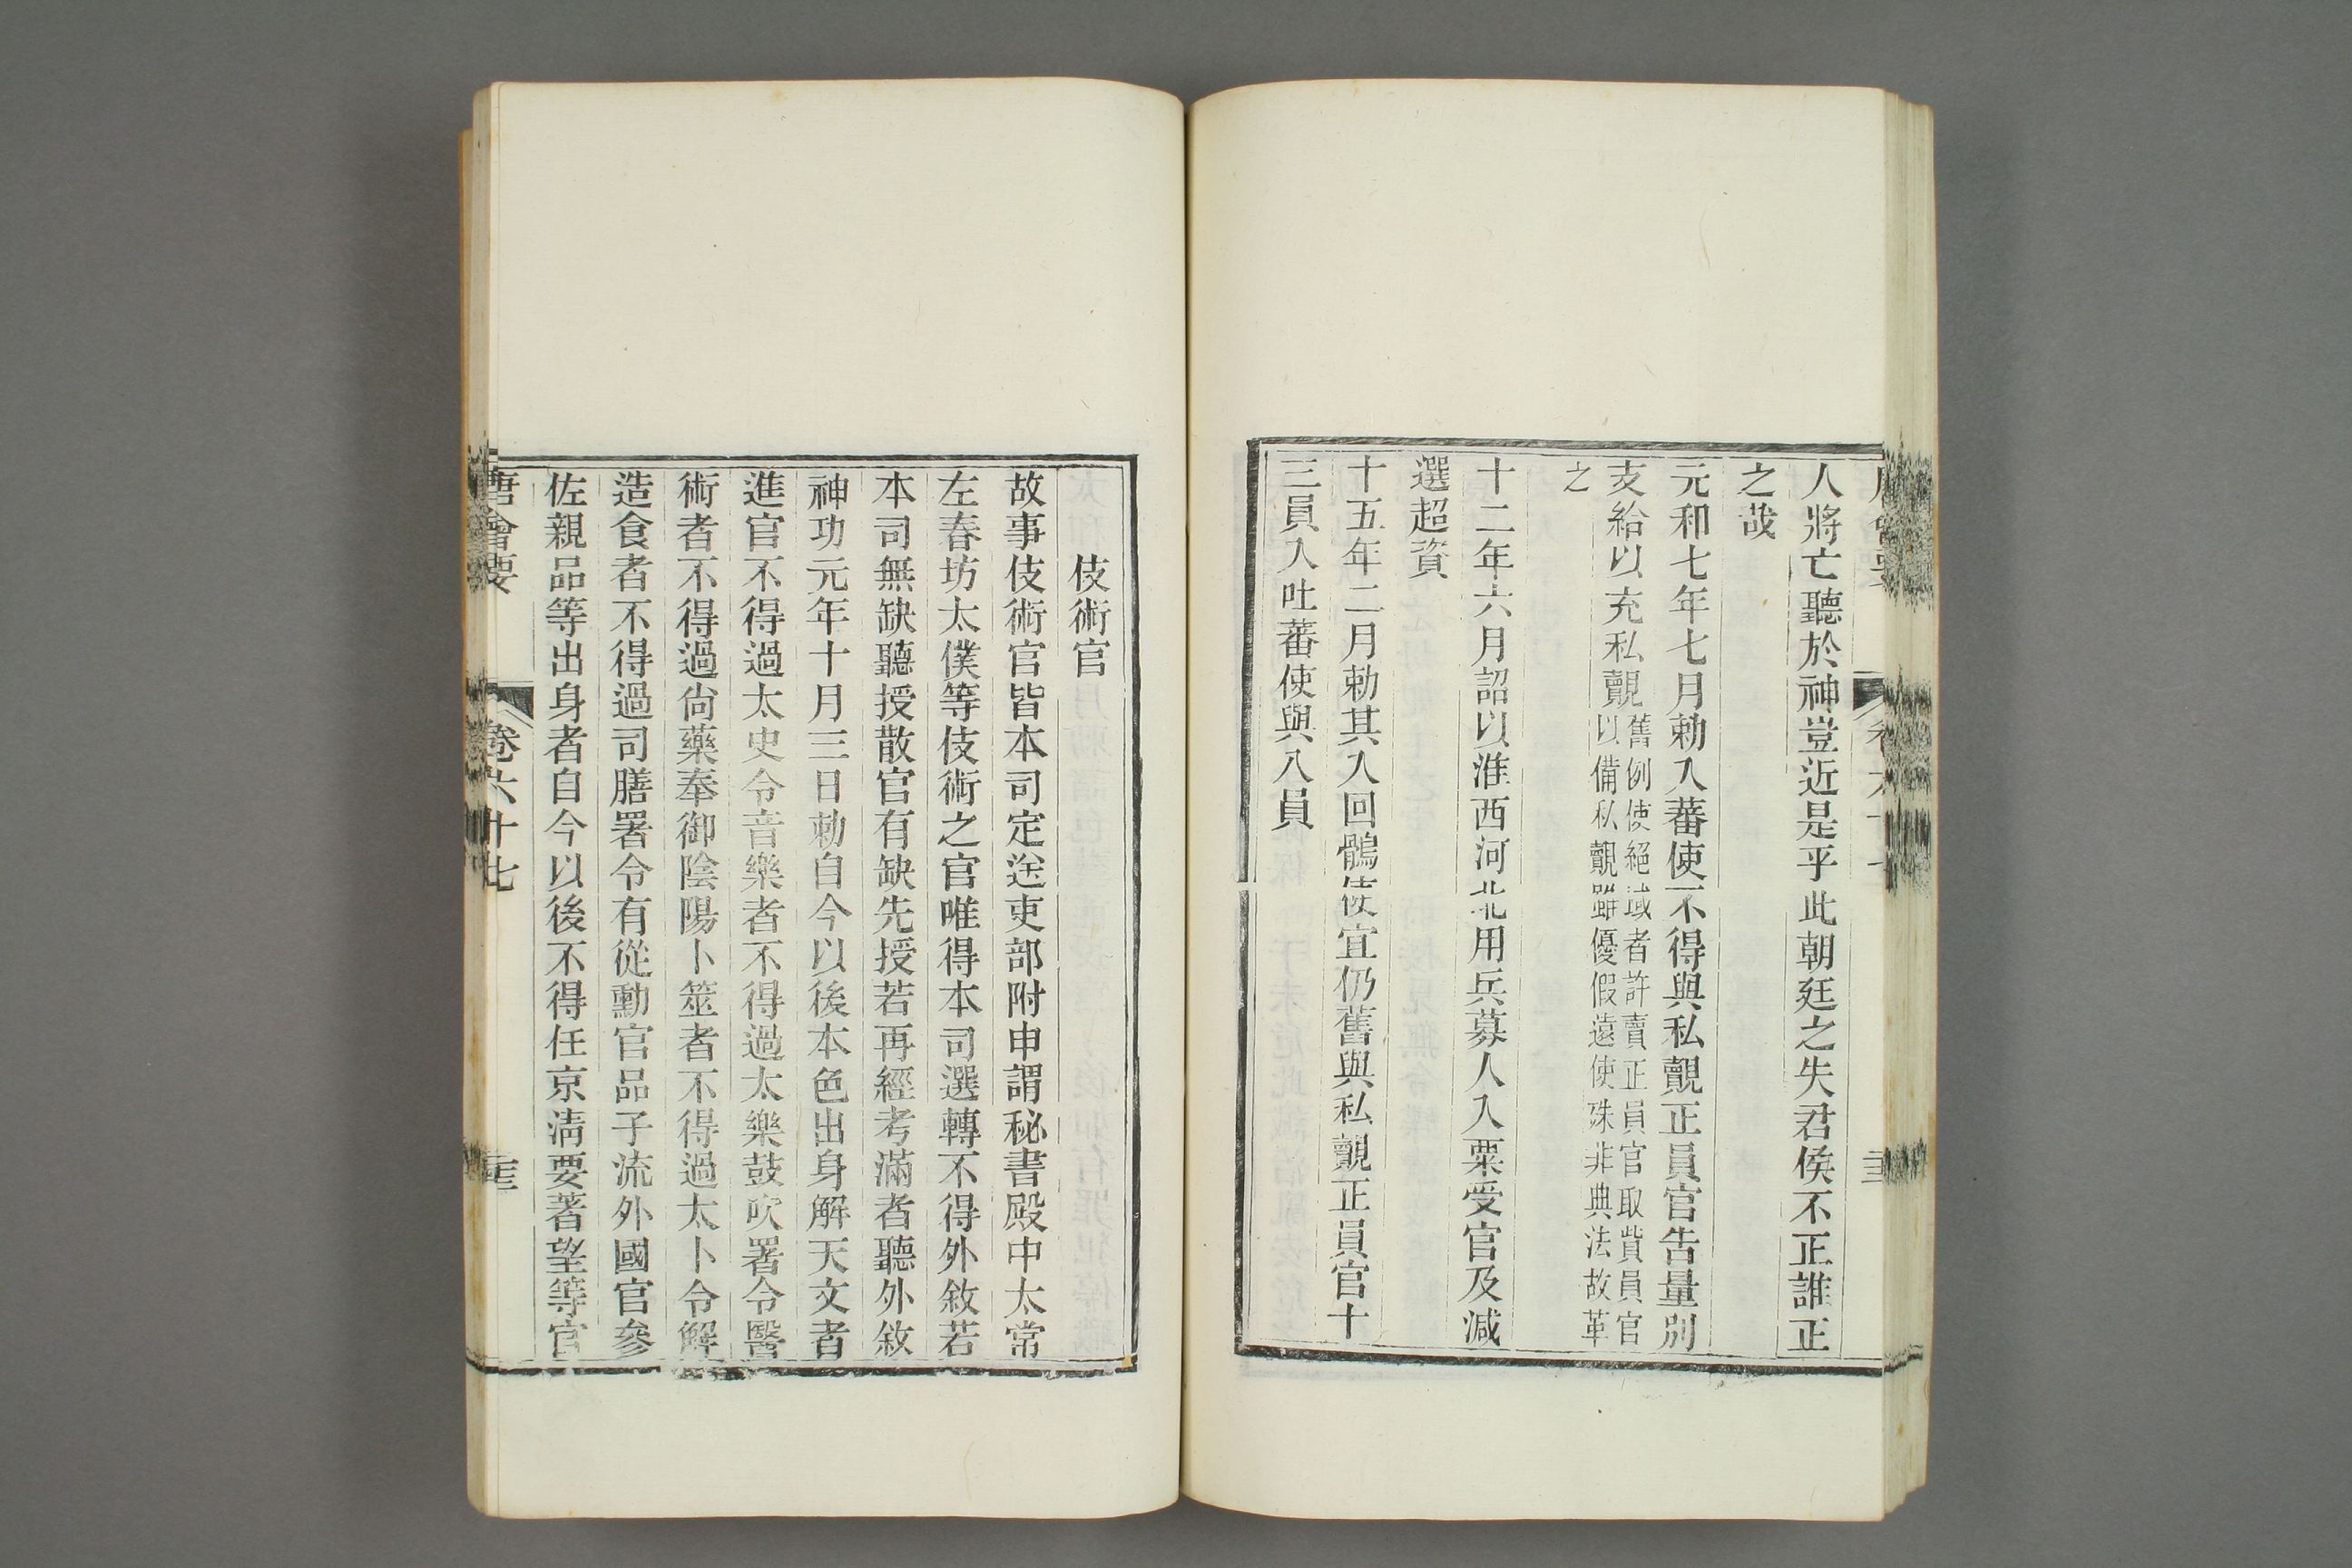 人將亡聽於神豈近是乎此朝廷之失君侯不正誰正
之哉
元和七年七月勅入蕃使不得與私覿正員官告量別
支給以充私覿舊例使絕域者許賣正員官取貲員官
以備私覿雖優假遠使殊非典法故革
之
十二年六月詔以淮西河北用兵募人入粟受官及減
選超資
十五年二月勅其入回鶻使宜仍舊與私覿正員官十
三員入吐蕃使與八員
伎術官
故事伎術官皆本司定送吏部附申謂秘書殿中太常
左春坊太僕等伎術之官唯得本司選轉不得外敘若
本司無缺聽授散官有缺先授若再經考滿者聽外敘
神功元年十月三日勅自今以後本色出身解天文者
進官不得過太史令音樂者不得過太樂鼓吹署令醫
術者不得過尙藥奉御陰陽卜筮者不得過太卜令解
造食者不得過司膳署令有從勳官品子流外國官參
佐親品等出身者自今以後不得任京淸要著望等官
唐會要 卷六十七